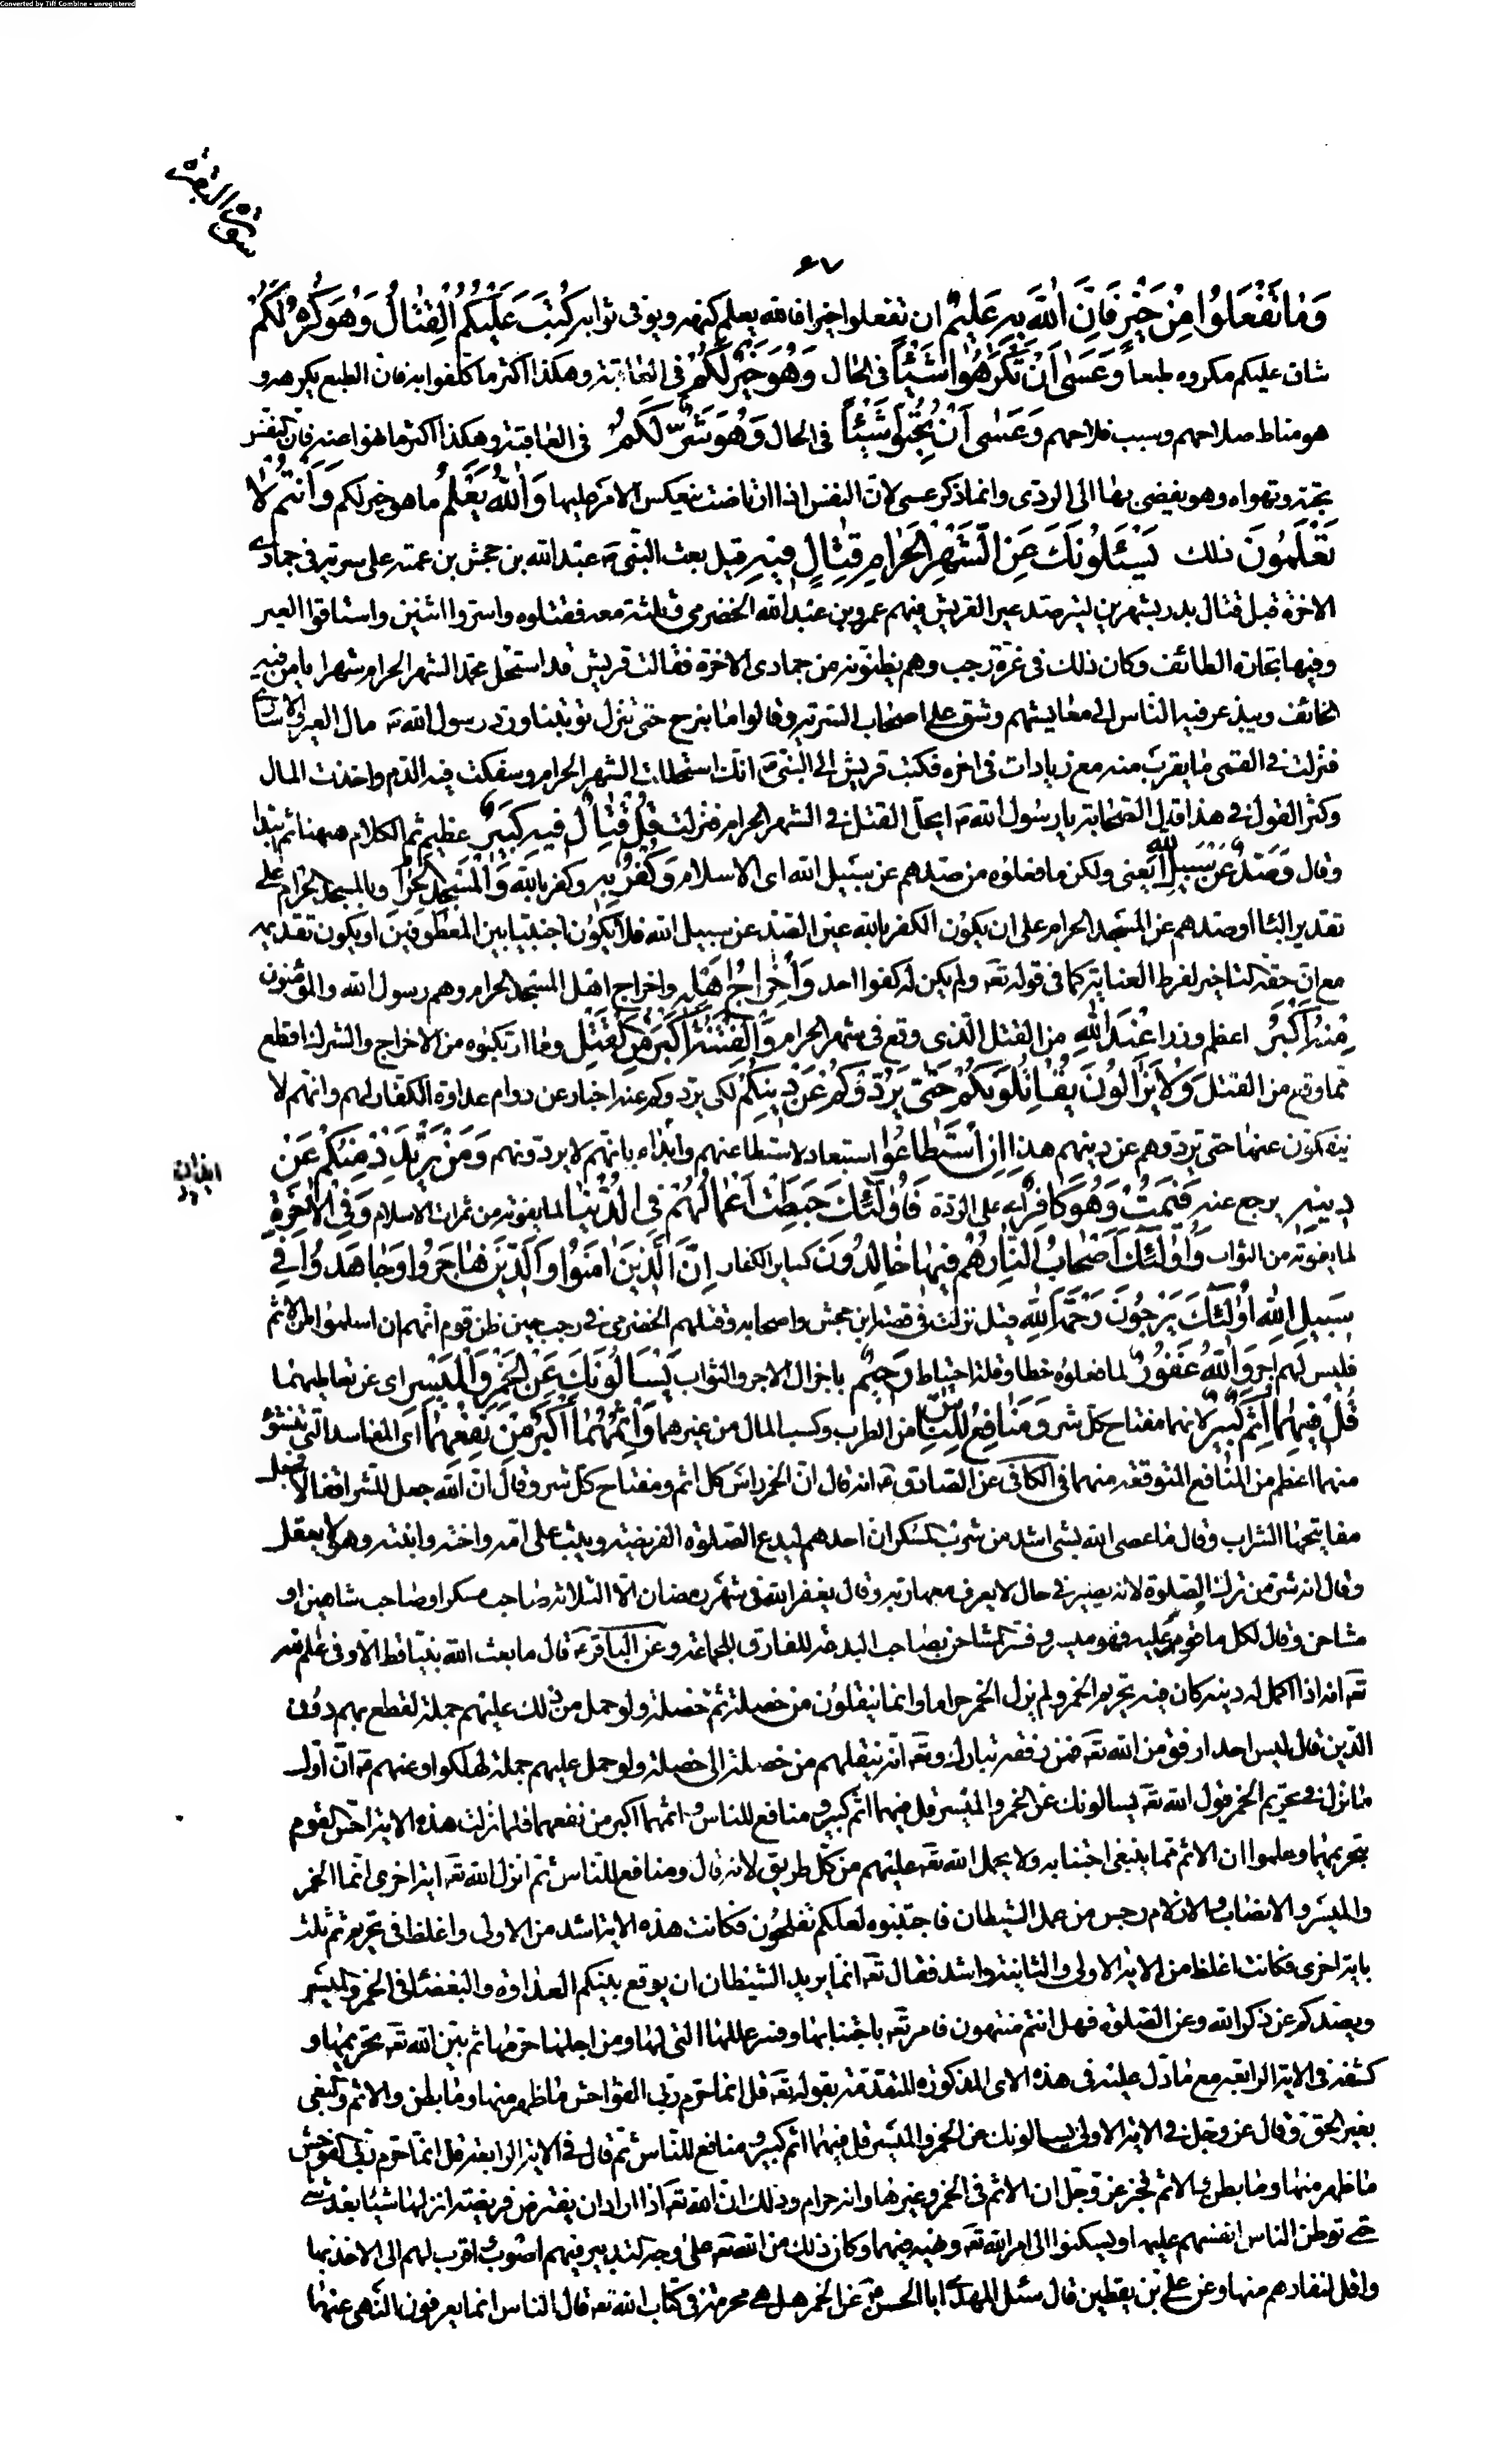 Converted by Tiff Combine - unregistered
سورة البقرة
٦٧
وَمَا تَفْعَلُوا مِنْ خَيْرٍ فَاِنَّ اللّٰهَ بِهِ عَلِيمٌ ان تفعلوا خيرا فان الله يعلم كنهه ويوفى ثوابه كُتِبَ عَلَيْكُمُ الْقِتٰالُ وَهُوَ كُرْهٌ لَكُمْ
شاق عليكم مكروه طبعا وَعَسىٰ اَنْ تَكْرَهُوا شَيْئًا فى الحال وَهُوَ خَيْرٌ لَكُمْ فى العاقبة وهكذا اكثر ما كلفوا به فان الطبع يكرهه و
هو مناط صلاحهم وسبب فلاحهم وَعَسٰى اَنْ تُحِبُّوا شَيْئًا فى الحال وَهُوَ شَرٌّ لَكُمْ فى العاقبة وهكذا اكثر ما نهوا عنه فان النفس
تحبه وتهواه وهو يفضى بها الى الردى وانما ذكر عسى لان النفس اذا ارتاضت ينعكس الامر عليها وَاللّٰهُ يَعْلَمُ ما هو خير لكم وَاَنْتُمْ لٰا
تَعْلَمُونَ ذلك يَسْئَلُونَكَ عَنِ الشَّهْرِ الْحَرٰامِ قِتٰالٍ فِيهِ قيل بعث النبى ص عبد الله بن جحش بن عمته على سرية فى جمادى
الاخرة قبل قتال بدر بشهرين ليترصد عير القريش فيهم عمرو بن عبد الله الحضرمى وثلثة معه فقتلوه واسروا اثنين واستاقوا العير
وفيها تجارة الطائف وكان ذلك فى غرة رجب وهم يظنونه من جمادى الاخرة فقالت قريش قد استحل محمد الشهر الحرام شهرا يامن فيه
الخائف ويبذعر فيه الناس الى معايشهم وشق على اصحاب السرية وقالوا ما نبرح حتى تنزل توبتنا ورد رسول الله ص مال العير والاسارى
فنزلت فى القمى ما يقرب منه مع زيادات فى اخره فكتب قريش الى النبى ص انك استحللت الشهر الحرام وسفكت فيه الدم واخذت المال
وكثر القول فى هذا قال الصحابة يا رسول الله ص ايحل القتل فى الشهر الحرام فنزلت قُلْ قِتٰالٌ فِيهِ كَبِيرٌ عظيم ثم الكلام ههنا ثم ابتدا
وقال وَصَدٌّ عَنْ سَبِيلِ اللّٰهِ يعنى ولكن ما فعلوه من صدهم عن سبيل الله اى الاسلام وَكُفْرٌ بِهِ وكفر بالله وَالْمَسْجِدِ الْحَرٰامِ وبالمسجد الحرام على
تقدير البا او صدهم عن المسجد الحرام على ان يكون الكفر بالله عين الصد عن سبيل الله فلا يكون اجنبيا بين المعطوفين او يكون تقديمه
مع ان حقه التاخير لفرط العناية كما فى قوله تعه ولم يكن له كفوا احد وَاِخْرٰاجُ اَهْلِهِ واخراج اهل المسجد الحرام وهم رسول الله والمؤمنون
مِنْهُ اَكْبَرُ اعظم وزرا عِنْدَ اللّٰهِ من القتل الذى وقع فى شهر الحرام وَالْفِتْنَةُ اَكْبَرُ مِنَ الْقَتْلِ وما ارتكبوه من الاخراج والشرك افظع
مما وقع من القتل وَلٰا يَزٰالُونَ يُقٰاتِلُونَكُمْ حَتّٰى يَرُدُّوكُمْ عَنْ دِينِكُمْ لكى يردوكم عنه اخبار عن دوام عداوة الكفار لهم وانهم لا
ينفكون عنها حتى يردوهم عن دينهم هذا اِنِ اسْتَطٰاعُوا استبعاد لاستطاعتهم وايذاء بانهم لا يردونهم وَمَنْ يَرْتَدِدْ مِنْكُمْ عَنْ
دِينِهِ يرجع عنه فَيَمُتْ وَهُوَ كٰافِرٌ على الردة فَاُولٰئِكَ حَبِطَتْ اَعْمٰالُهُمْ فِى الدُّنْيٰا لما يفوته من ثمرات الاسلام وَفِى الْاٰخِرَةِ
لما يفوته من الثواب وَاُولٰئِكَ اَصْحٰابُ النّٰارِ هُمْ فِيهٰا خٰالِدُونَ كساير الكفار اِنَّ الَّذِينَ اٰمَنُوا وَالَّذِينَ هٰاجَرُوا وَجٰاهَدُوا فِى
سَبِيلِ اللّٰهِ اُولٰئِكَ يَرْجُونَ رَحْمَةَ اللّٰهِ قيل نزلت فى قصة ابن جحش واصحابه وقتلهم الحضرمى فى رجب حين ظن قوم انهم ان سلموا من الاثم
فليس لهم اجر وَاللّٰهُ غَفُورٌ لما فعلوه خطا وقلة احتياط رَحِيمٌ باجزال الاجر والثواب يَسْاَلُونَكَ عَنِ الْخَمْرِ وَالْمَيْسِرِ اى عن تعاطيهما
قُلْ فِيهِمٰا اِثْمٌ كَبِيرٌ لانهما مفتاح كل شر وَمَنٰافِعُ لِلنّٰاسِ من الطرب وكسب المال من غيرهما وَاِثْمُهُمٰا اَكْبَرُ مِنْ نَفْعِهِمٰا اى المفاسد التى تنشؤ
منهما اعظم من المنافع المتوقعة منهما فى الكافى عن الصادق ع انه قال ان الخمر راس كل اثم ومفتاح كل شر وقال ان الله جعل للشر اقفالا فجعل
مفاتيحها الشراب وقال ما عصى الله بشى اشد من شرب المسكر ان احدهم ليدع الصلوة الفريضة ويثب على امه واخته وابنته وهو لا يعقل
وقال انه شر من ترك الصلوة لانه يصير فى حال لا يعرف معها ربه وقال يغفر الله فى شهر رمضان الا الثلاثة صاحب مسكر او صاحب شاهين او
مشاحن وقال لكل ما قومر عليه فهو ميسر وفسر المشاحن بصاحب البدعة المفارق للجماعة وعن الباقر ع قال ما بعث الله نبيا قط الا وفى علم الله
تعه انه اذا اكمل له دينه كان فيه تحريم الخمر ولم يزل الخمر حراما وانما ينقلون من خصلة ثم خصلة ولو حمل من ذلك عليهم جملة لقطع بهم دون
الدين قال ليس احد ارفق من الله تعه فمن رفقه تبارك وتعه انه ينقلهم من خصلة الى خصلة ولو حمل عليهم جملة لهلكوا وعنهم ع ان اول
ما نزل فى تحريم الخمر قول الله تعه يسالونك عن الخمر والميسر قل فيهما اثم كبير ومنافع للناس واثمهما اكبر من نفعهما فلما نزلت هذه الاية احس القوم
بتحريمها وعلموا ان الاثم مما ينبغى اجتنابه ولا يحمل الله تعه عليهم من كل طريق لانه قال ومنافع للناس ثم انزل الله تعه اية اخرى انما الخمر
والميسر والانصاب والازلام رجس من عمل الشيطان فاجتنبوه لعلكم تفلحون فكانت هذه الاية اشد من الاولى واغلظ فى تحريم ثم ثلث
باية اخرى فكانت اغلظ من الاية الاولى والثانية واشد فقال تعه انما يريد الشيطان ان يوقع بينكم العداوة والبغضاء فى الخمر والميسر
ويصدكم عن ذكر الله وعن الصلوة فهل انتم منتهون فامر تعه باجتنابها وفسر عللها التى لها ومن اجلها حرمها ثم بين الله تعه تحريمها و
كشفه فى الاية الرابعة مع ما دل عليه فى هذه الاى المذكورة المتقدمة بقوله تعه قل انما حرم ربى الفواحش ما ظهر منها وما بطن والاثم والبغى
بغير الحق وقال عز وجل فى الاية الاولى يسالونك عن الخمر والميسر قل فيهما اثم كبير ومنافع للناس ثم قال فى الاية الرابعة قل انما حرم ربى الفواحش
ما ظهر منها وما بطن والاثم فخبر عز وجل ان الاثم فى الخمر وغيرها وانه حرام وذلك ان الله تعه اذا اراد ان يفترض فريضة انزلها شيئا بعد شى
حتى توطن الناس انفسهم عليها ويسكنوا الى امر الله تعه ونهيه فيهما وكان ذلك من الله تعه على وجه التدبير فيهم اصوب واقرب لهم الى الاخذ بها
واقل لنفارهم منها وعن على بن يقطين قال سئل المهدى ابا الحسن ع عن الخمر هل هى محرمة فى كتاب الله تعه قال الناس انما يعرفون النهى عنها